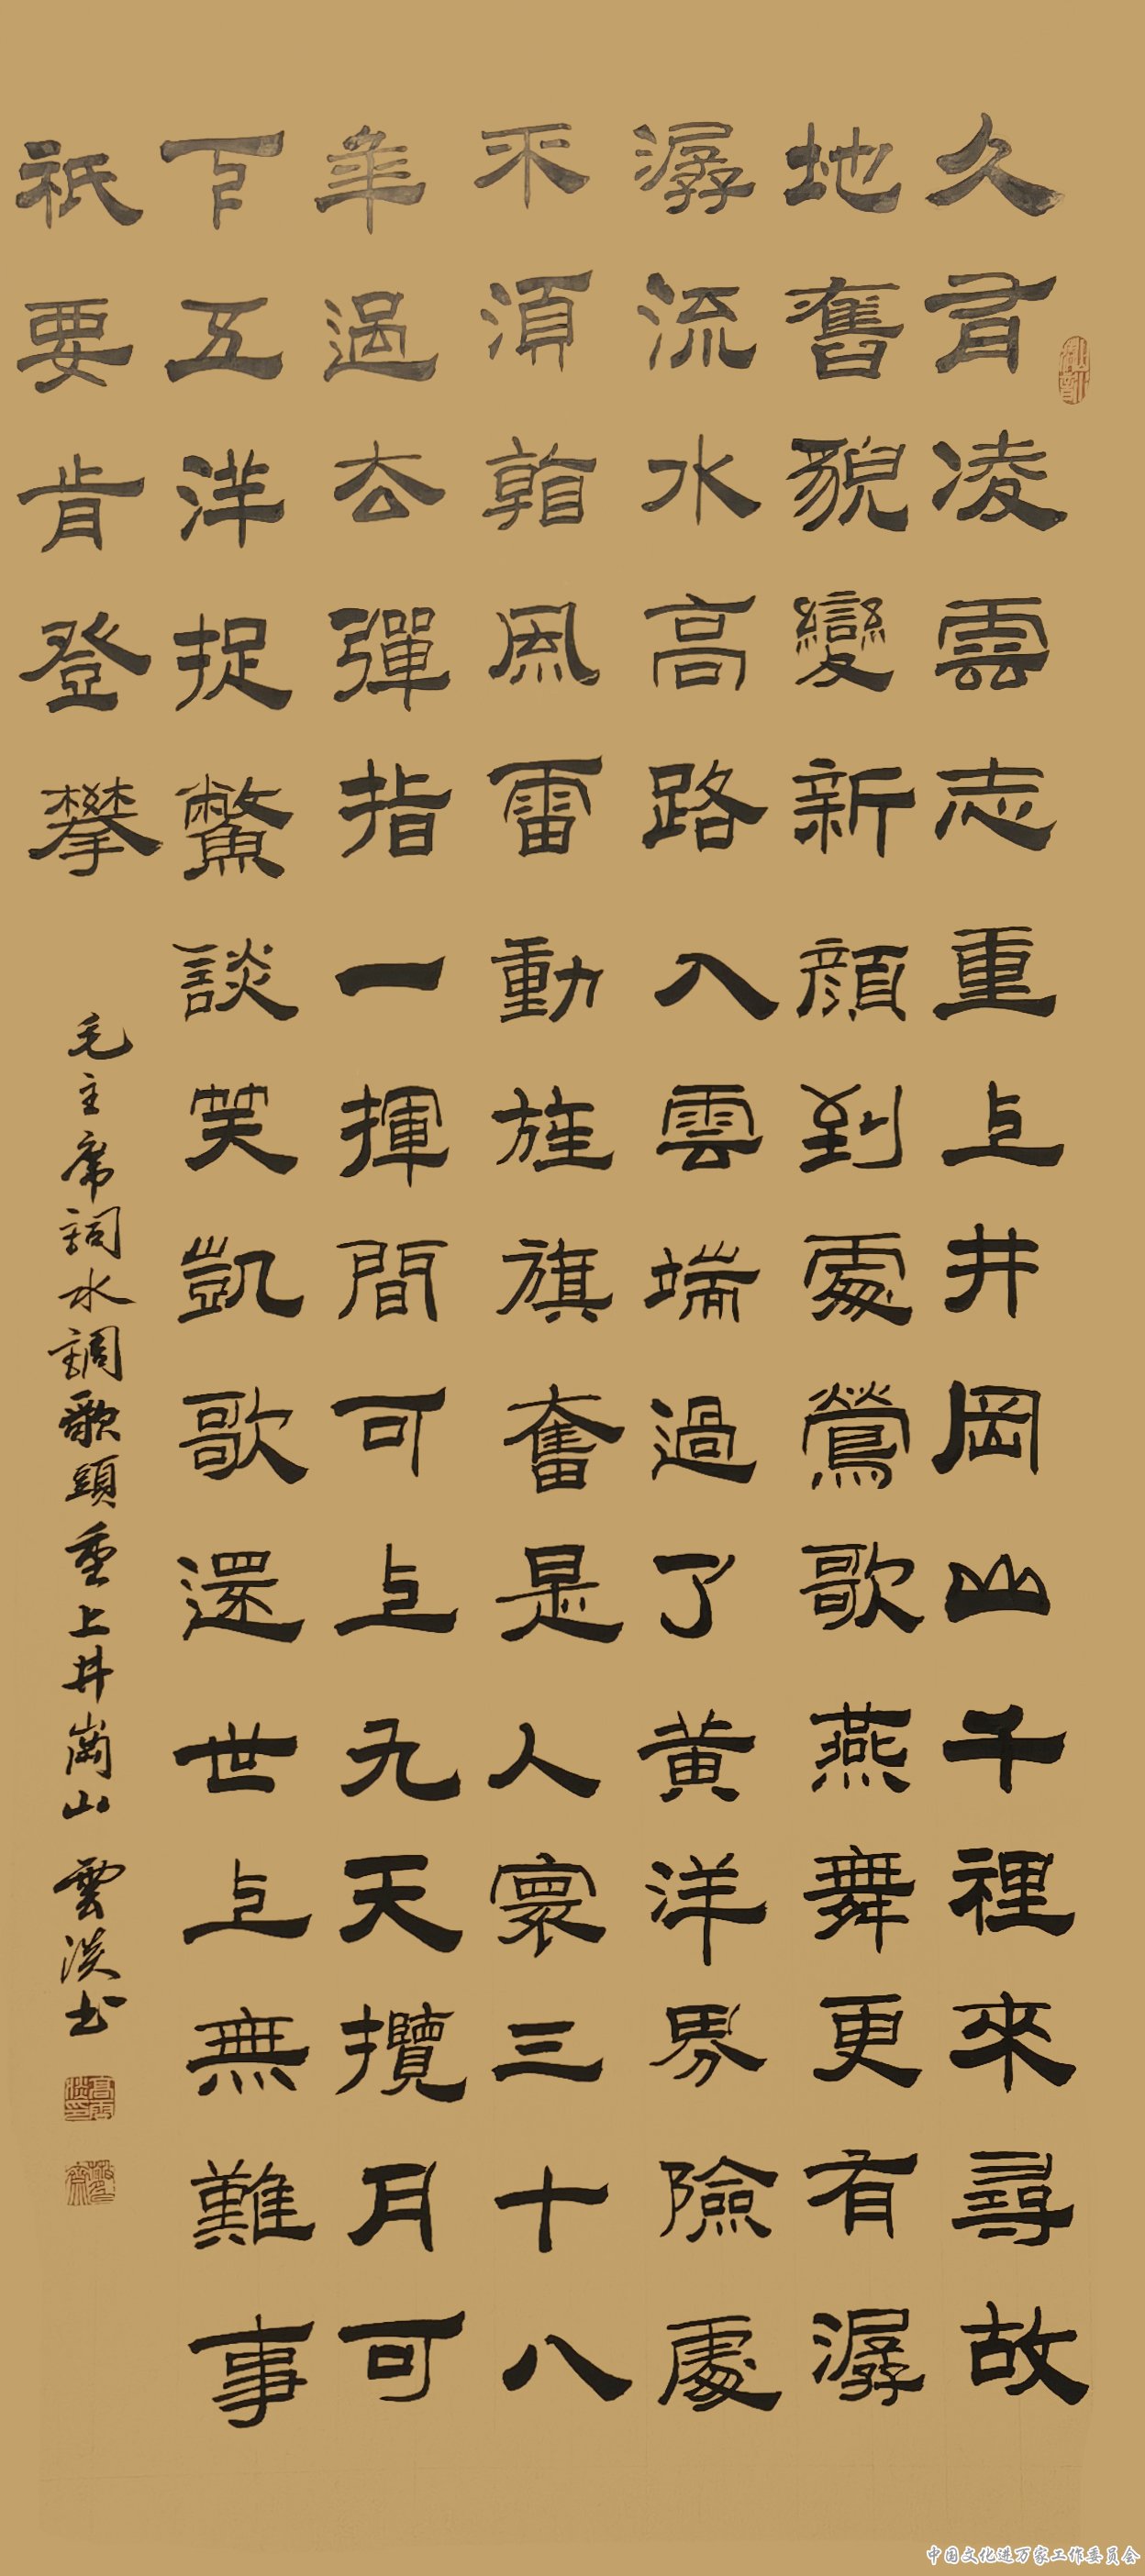 久有凌雲志重上井岡山千裡來尋故
地舊貌變新顔到處鶯歌燕舞更有潺
潺流水高路入雲端過了黄洋界險處
不須看風雷動旌旗奮是人寰三十八
年過去彈指一揮間可上九天攬月可
下五洋捉鱉談笑凱歌還世上無難事
祇要肯登攀
毛主席詞水調歌頭重上井崗山 雲淡书
中国文化進万家工作委员会